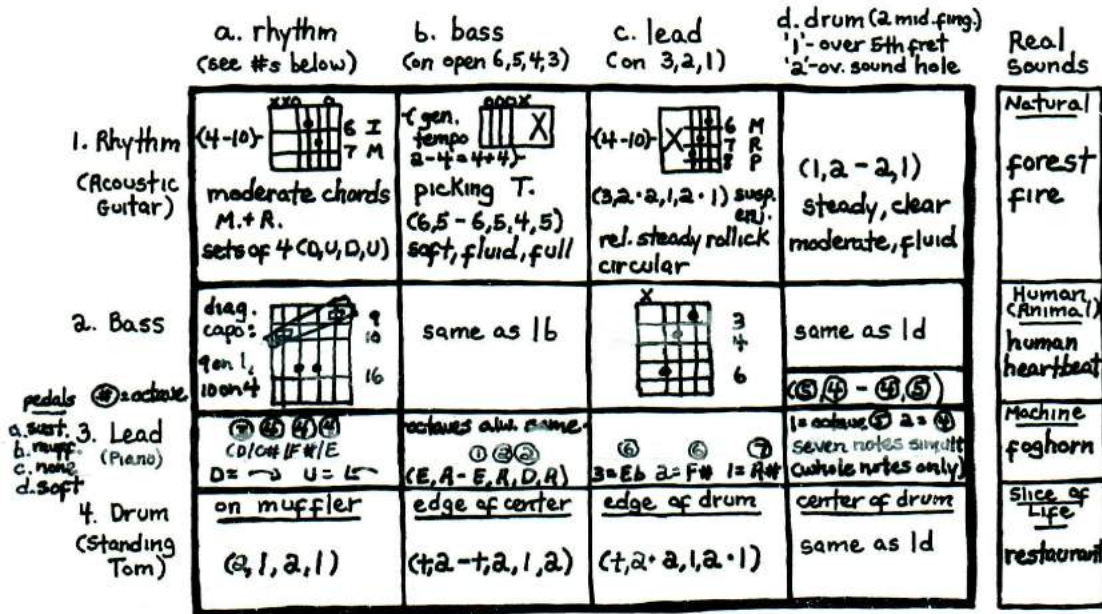 a. rhythm
(see #s below)
b. bass
(on open 6,5,4,3)
c. lead
(on 3,2,1)
d. drum (2 mid. fing.)
'1'- over 5th fret
'2'- ov. sound hole
Real
Sounds
1. Rhythm
(Acoustic
Guitar)
xxo o
(4-10)
6 I
7 M
moderate chords
M. + R.
sets of 4 (D,U,D,U)
ooox
X
gen.
tempo
2-4=4+4
picking T.
(6,5 - 6,5,4,5)
soft, fluid, full
(4-10)
X
6 M
7 R
8 P
(3,2 · 2,1,2 · 1) susp.
rel. steady rollick
circular
(1,2 - 2,1)
steady, clear
moderate, fluid
Natural
forest
fire
2. Bass
diag.
capo:
9 on 1,
10 on 4
9
10
16
same as 1b
X
3
4
6
same as 1d
Human
(Animal)
human
heartbeat
pedals
a. sust.
b. muff.
c. none
d. soft
# = octave
3. Lead
(Piano)
4 4 4
(D/C#/F#/E
D= U=
octaves alw. same
1 2 2
(E,A - E,A,D,A)
6 6 7
3=Eb 2=F# 1=A#
(5,4 - 4,5)
1= octave 5 2= 4
seven notes simult
(whole notes only)
Machine
foghorn
4. Drum
(Standing
Tom)
on muffler
(2,1,2,1)
edge of center
(t,2-t,2,1,2)
edge of drum
(t,2·2,1,2·1)
center of drum
same as 1d
Slice of
Life
restaurant